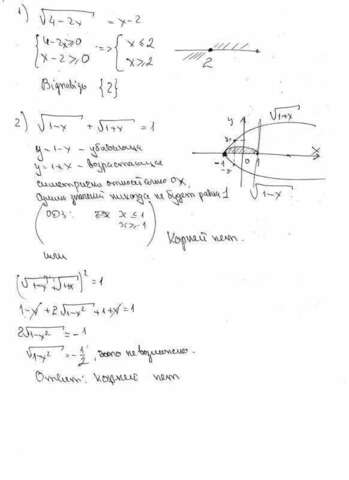 1) √(4-2x) = x-2
{4-2x≥0 => {x≤2
x-2≥0 x≥2
2
Відповідь {2}
2) √(1-x) + √(1+x) = 1
y=1-x - убывающая
y=1+x - возрастающая
симметрично относительно Ox,
сумма значений никогда не будет равна 1
ОДЗ: x≤1
x≥-1
Корней нет.
y
√(1+x)
-1 0 1 x
√(1-x)
или
(√(1-x) + √(1+x))² = 1
1-x+2√(1-x²)+1+x=1
2√(1-x²) = -1
√(1-x²) = -1/2, это невозможно.
Ответ: корней нет